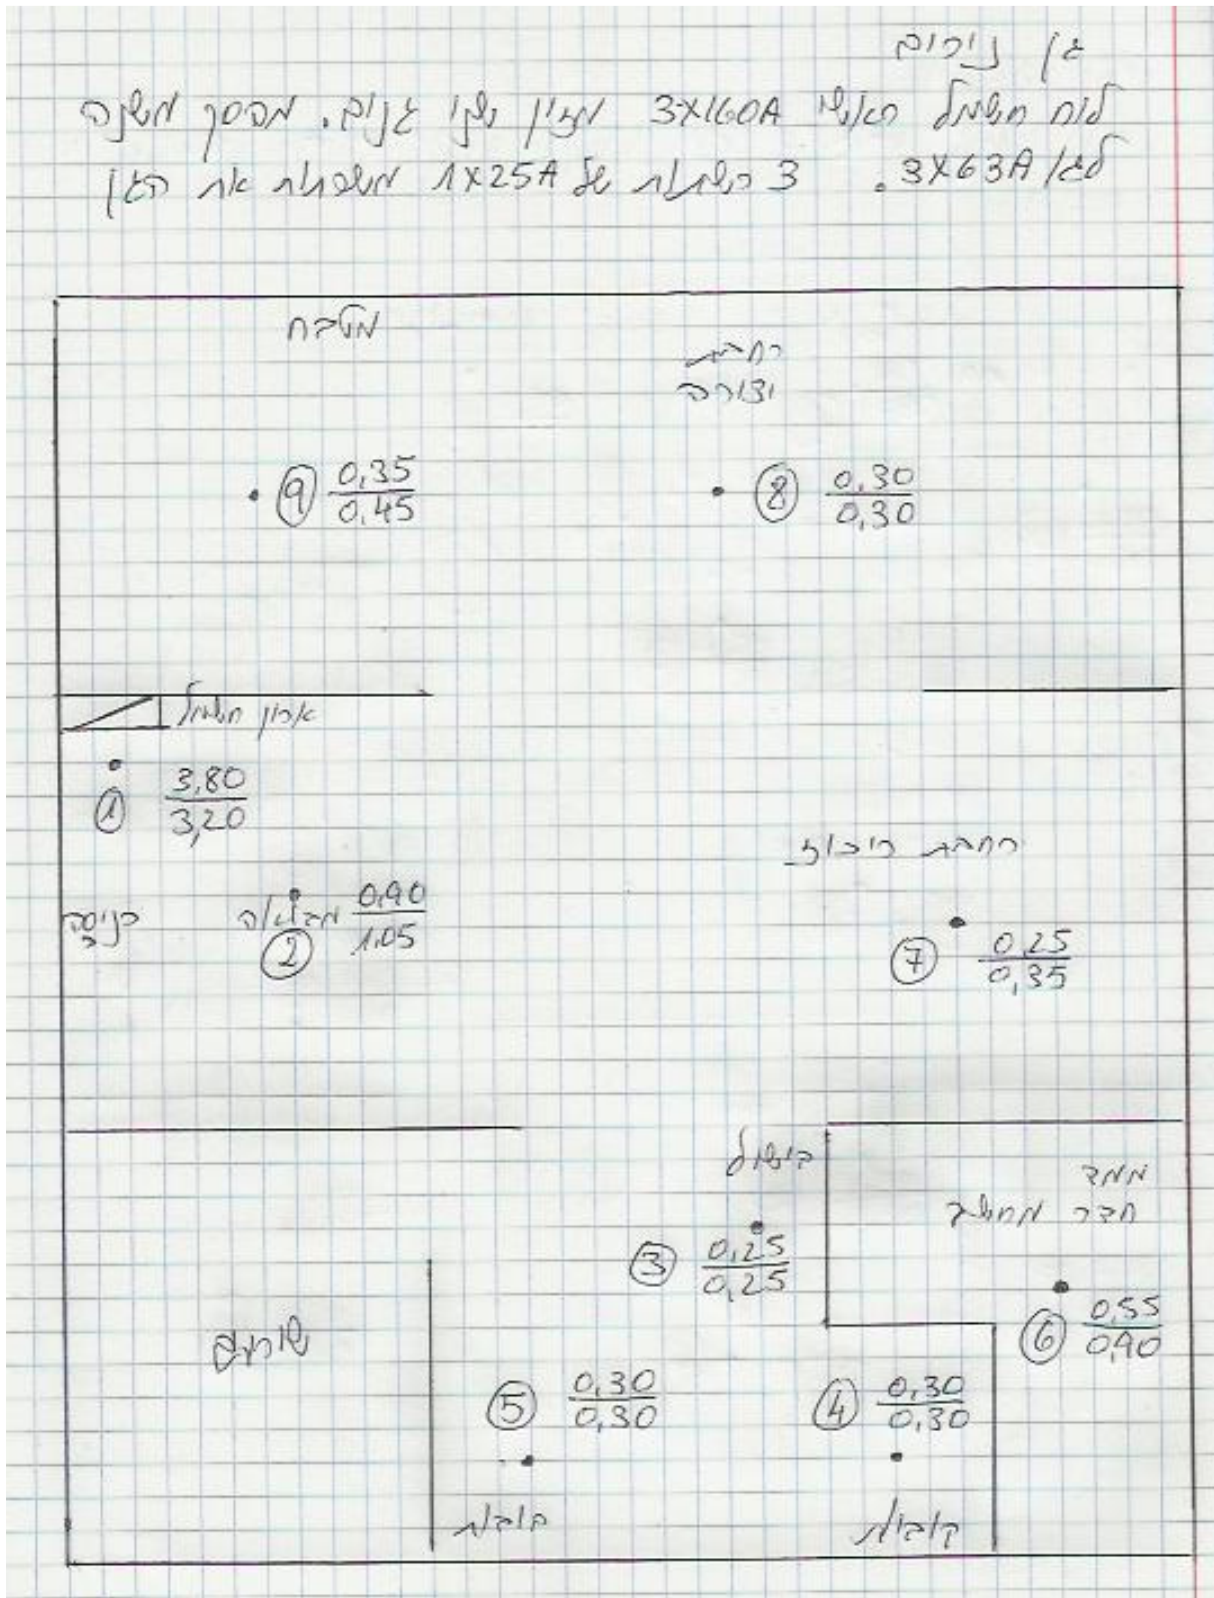 גן נירים
לוח חשמל ראשי 3X160A מזין שני גנים. מפסק משנה
לגן 3X63A. 3 רשתות של 1X25A משרתות את הגן
מטבח
רחבת
יצירה
9 0,35
0,45
8 0,30
0,30
ארון חשמל
1 3,80
3,20
רחבת ריכוז
כניסה
מבואה 0,90
1,05
2
7 0,25
0,35
בישול
ממד
חדר מחשב
3 0,25
0,25
6 0,55
0,90
שירותים
5 0,30
0,30
4 0,30
0,30
בובות
קוביות